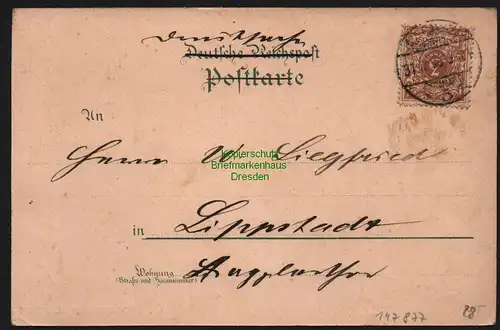 Drucksache
Deutsche Reichspost
Postkarte
An
Herrn W. Siegfried
Kopierschutz
Briefmarkenhaus
Dresden
in Lippstadt
Wohnung
(Straße und Hausnummer)
147 877
28